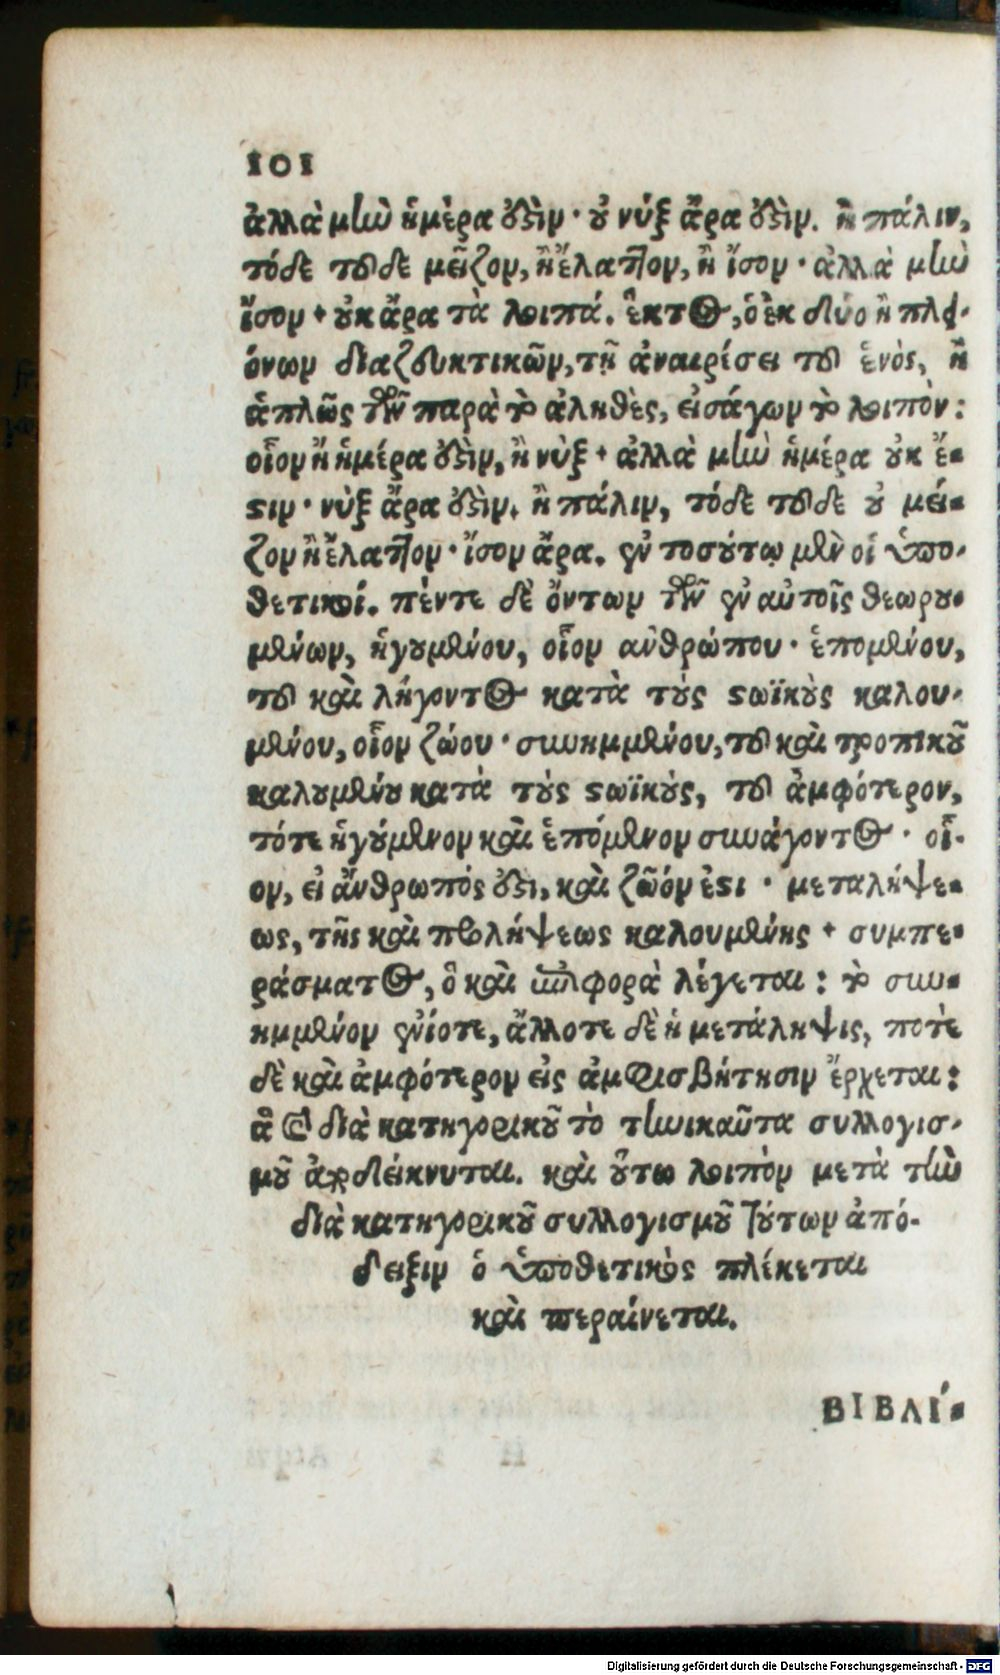 101
ἀλλὰ μὴν ἡμέρα ἐστὶν· οὐ νύξ ἄρα ἐστὶν. ἢ πάλιν,
τόδε τοῦδε μεῖζον, ἢ ἔλαττον, ἢ ἴσον· ἀλλὰ μὴν
ἴσον· οὐκ ἄρα τὰ λοιπά. ἕκτος, ὁ ἐκ δύο ἢ πλει-
όνων διαζευκτικῶν, τῇ ἀναιρέσει τοῦ ἑνὸς, ἢ
ἁπλῶς τῶν παρὰ τὸ ἀληθὲς, εἰσάγων τὸ λοιπὸν:
οἷον ἢ ἡμέρα ἐστὶν, ἢ νὺξ· ἀλλὰ μὴν ἡμέρα οὐκ ἔ-
στιν· νὺξ ἄρα ἐστὶν. ἢ πάλιν, τόδε τοῦδε οὐ μεί-
ζον ἢ ἔλαττον· ἴσον ἄρα. ἐν τοσούτῳ μὲν οἱ ὑπο-
θετικοί. πέντε δὲ ὄντων τῶν ἐν αὐτοῖς θεωρου-
μένων, ἡγουμένου, οἷον ἀνθρώπου· ἑπομένου,
τοῦ καὶ λήγοντος κατὰ τοὺς στωϊκοὺς καλου-
μένου, οἷον ζώου· συνημμένου, τοῦ καὶ τροπικοῦ
καλουμένου κατὰ τοὺς στωϊκοὺς, τοῦ ἀμφότερον,
τότε ἡγούμενον καὶ ἑπόμενον συνάγοντος· οἷ-
ον, εἰ ἄνθρωπός ἐστι, καὶ ζῶόν ἐστι· μεταλήψε-
ως, τῆς καὶ προλήψεως καλουμένης· συμπε-
ράσματος, ὃ καὶ ἐπιφορὰ λέγεται: τὸ συν-
ημμένον ἐνίοτε, ἄλλοτε δὲ ἡ μετάληψις, ποτὲ
δὲ καὶ ἀμφότερον εἰς ἀμφισβήτησιν ἔρχεται:
ἃ καὶ διὰ κατηγορικοῦ τὸ τηνικαῦτα συλλογισ-
μοῦ ἀποδείκνυται. καὶ οὕτω λοιπὸν μετὰ τὴν
διὰ κατηγορικοῦ συλλογισμοῦ τούτων ἀπό-
δειξιν ὁ ὑποθετικὸς πλέκεται
καὶ περαίνεται.
ΒΙΒΛΊ-
Digitalisierung gefördert durch die Deutsche Forschungsgemeinschaft - DFG